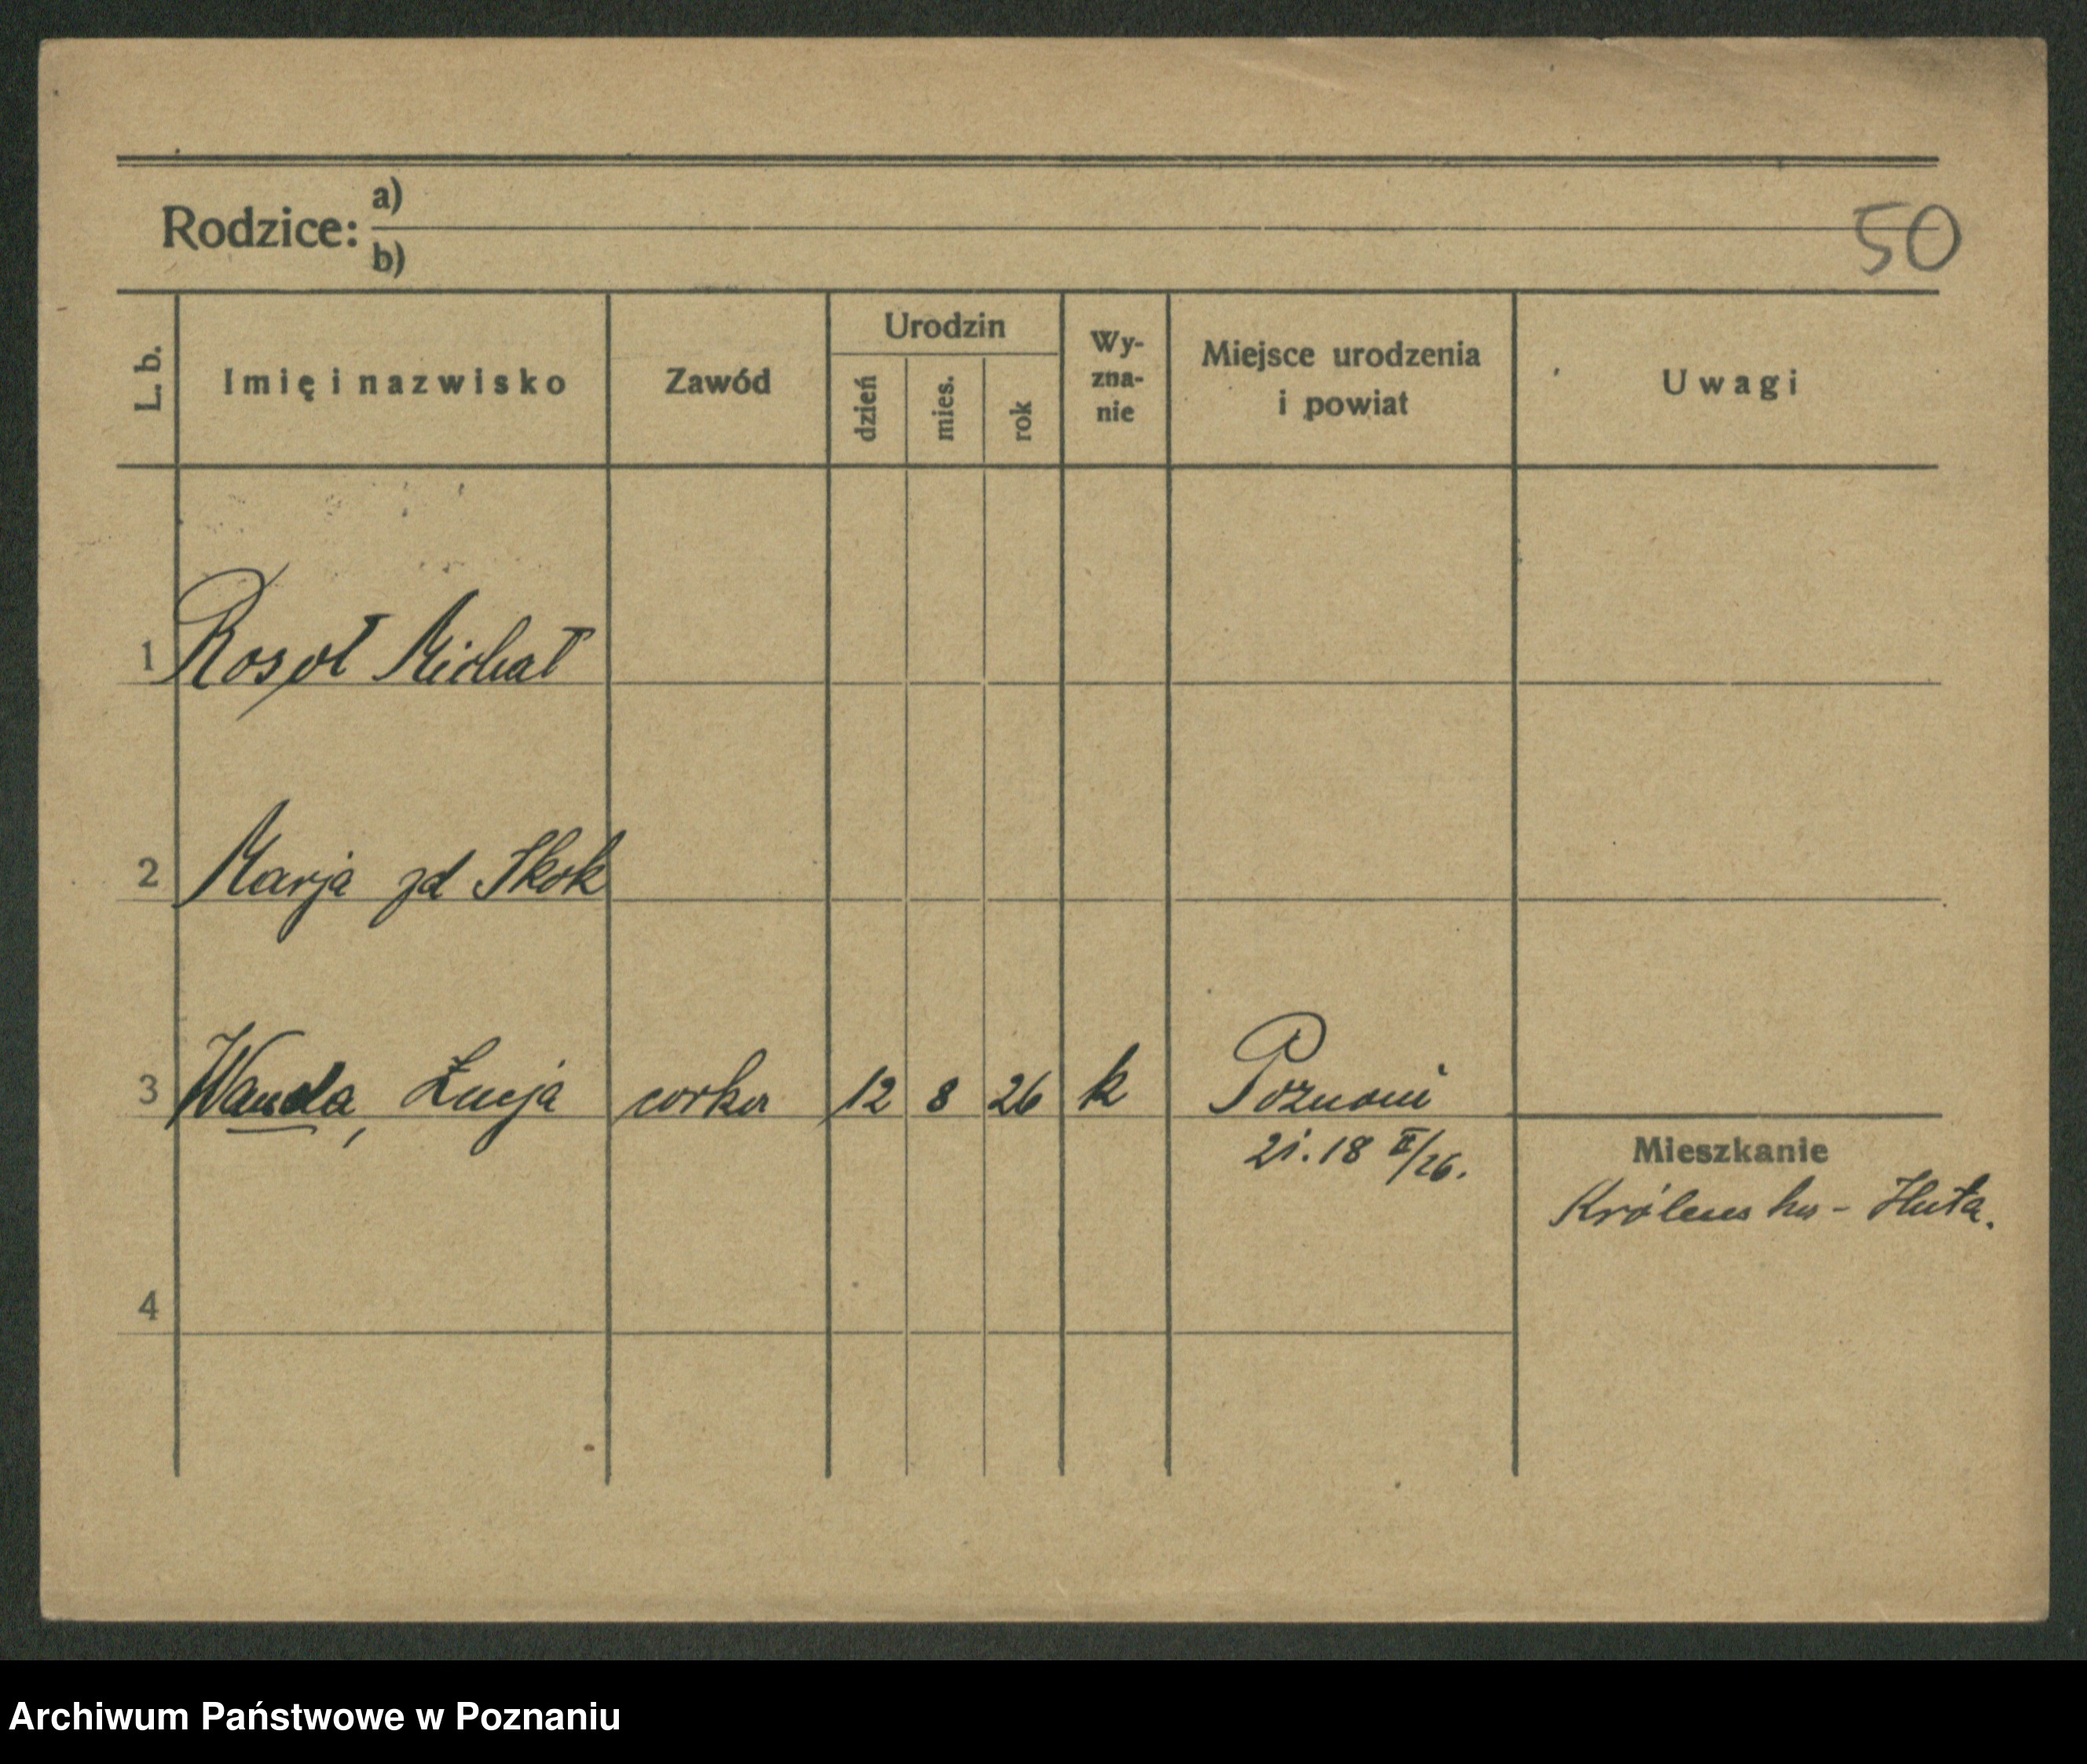 Rodzice: a)
b)
50
L. b.
Imię i nazwisko
Zawód
Urodzin
dzień
mies.
rok
Wy-
zna-
nie
Miejsce urodzenia
i powiat
Uwagi
1 Rosół Michał
2 Marja zd Skok
3 Wanda, Łucja córka 12 8 26 k Poznań
18 /26.
Mieszkanie
Królewska - Huta.
4
Archiwum Państwowe w Poznaniu